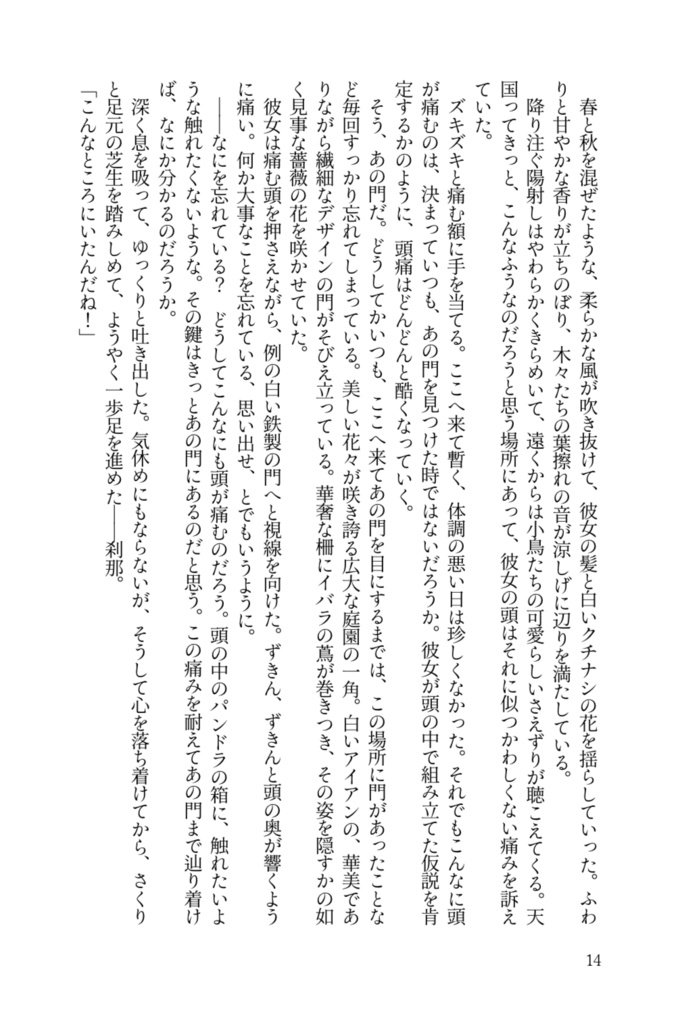 春と秋を混ぜたような、柔らかな風が吹き抜けて、彼女の髪と白いクチナシの花を揺らしていった。ふわ
りと甘やかな香りが立ちのぼり、木々たちの葉擦れの音が涼しげに辺りを満たしている。
　降り注ぐ陽射しはやわらかくきらめいて、遠くからは小鳥たちの可愛らしいさえずりが聴こえてくる。天
国ってきっと、こんなふうなのだろうと思う場所にあって、彼女の頭はそれに似つかわしくない痛みを訴え
ていた。
　ズキズキと痛む額に手を当てる。ここへ来て暫く、体調の悪い日は珍しくなかった。それでもこんなに頭
が痛むのは、決まっていつも、あの門を見つけた時ではないだろうか。彼女が頭の中で組み立てた仮説を肯
定するかのように、頭痛はどんどんと酷くなっていく。
　そう、あの門だ。どうしてかいつも、ここへ来てあの門を目にするまでは、この場所に門があったことな
ど毎回すっかり忘れてしまっている。美しい花々が咲き誇る広大な庭園の一角。白いアイアンの、華美であ
りながら繊細なデザインの門がそびえ立っている。華奢な柵にイバラの蔦が巻きつき、その姿を隠すかの如
く見事な薔薇の花を咲かせていた。
　彼女は痛む頭を押さえながら、例の白い鉄製の門へと視線を向けた。ずきん、ずきんと頭の奥が響くよう
に痛い。何か大事なことを忘れている、思い出せ、とでもいうように。
　――なにを忘れている？　どうしてこんなにも頭が痛むのだろう。頭の中のパンドラの箱に、触れたいよ
うな触れたくないような。その鍵はきっとあの門にあるのだと思う。この痛みを耐えてあの門まで辿り着け
ば、なにか分かるのだろうか。
　深く息を吸って、ゆっくりと吐き出した。気休めにもならないが、そうして心を落ち着けてから、さくり
と足元の芝生を踏みしめて、ようやく一歩足を進めた――刹那。
「こんなところにいたんだね！」
14